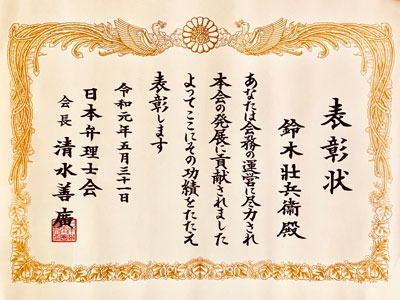 表彰状
鈴木壯兵衞殿
あなたは会務の運営に尽力され
本会の発展に貢献されました
よってここにその功績をたたえ
表彰します
令和元年五月三十一日
日本弁理士会
会長 清水善廣